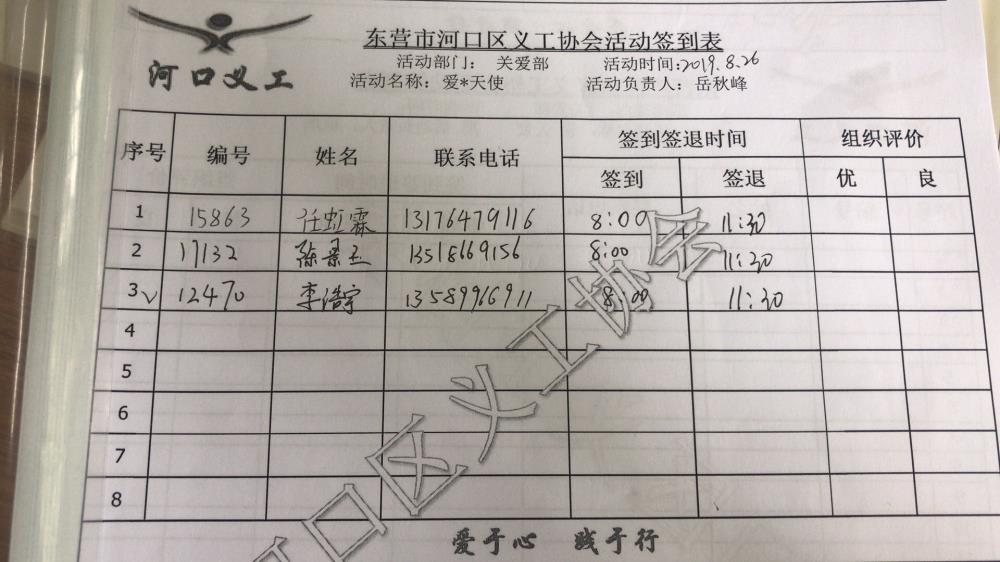 东营市河口区义工协会活动签到表
河口义工
活动部门： 关爱部 活动时间:2019.8.26
活动名称：爱*天使 活动负责人：岳秋峰
序号 编号 姓名 联系电话 签到签退时间 组织评价
签到 签退 优 良
1 15863 任虹霖 13176479116 8:00 11:30
2 17132 陈景玉 13518669156 8:00 11:30
3√ 12470 李浩宇 13589966911 8:00 11:30
4
5
6
7
8
口区义工协会
爱于心 践于行